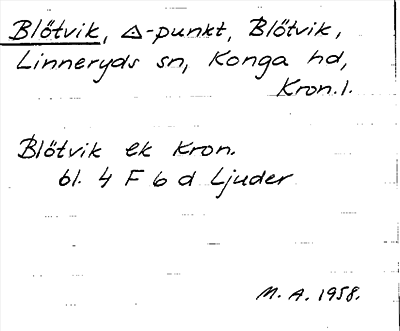 Blötvik, △-punkt, Blötvik,
Linneryds sn, Konga hd,
Kron.l.
Blötvik ek Kron.
bl. 4 F 6 d Ljuder
M. A. 1958.